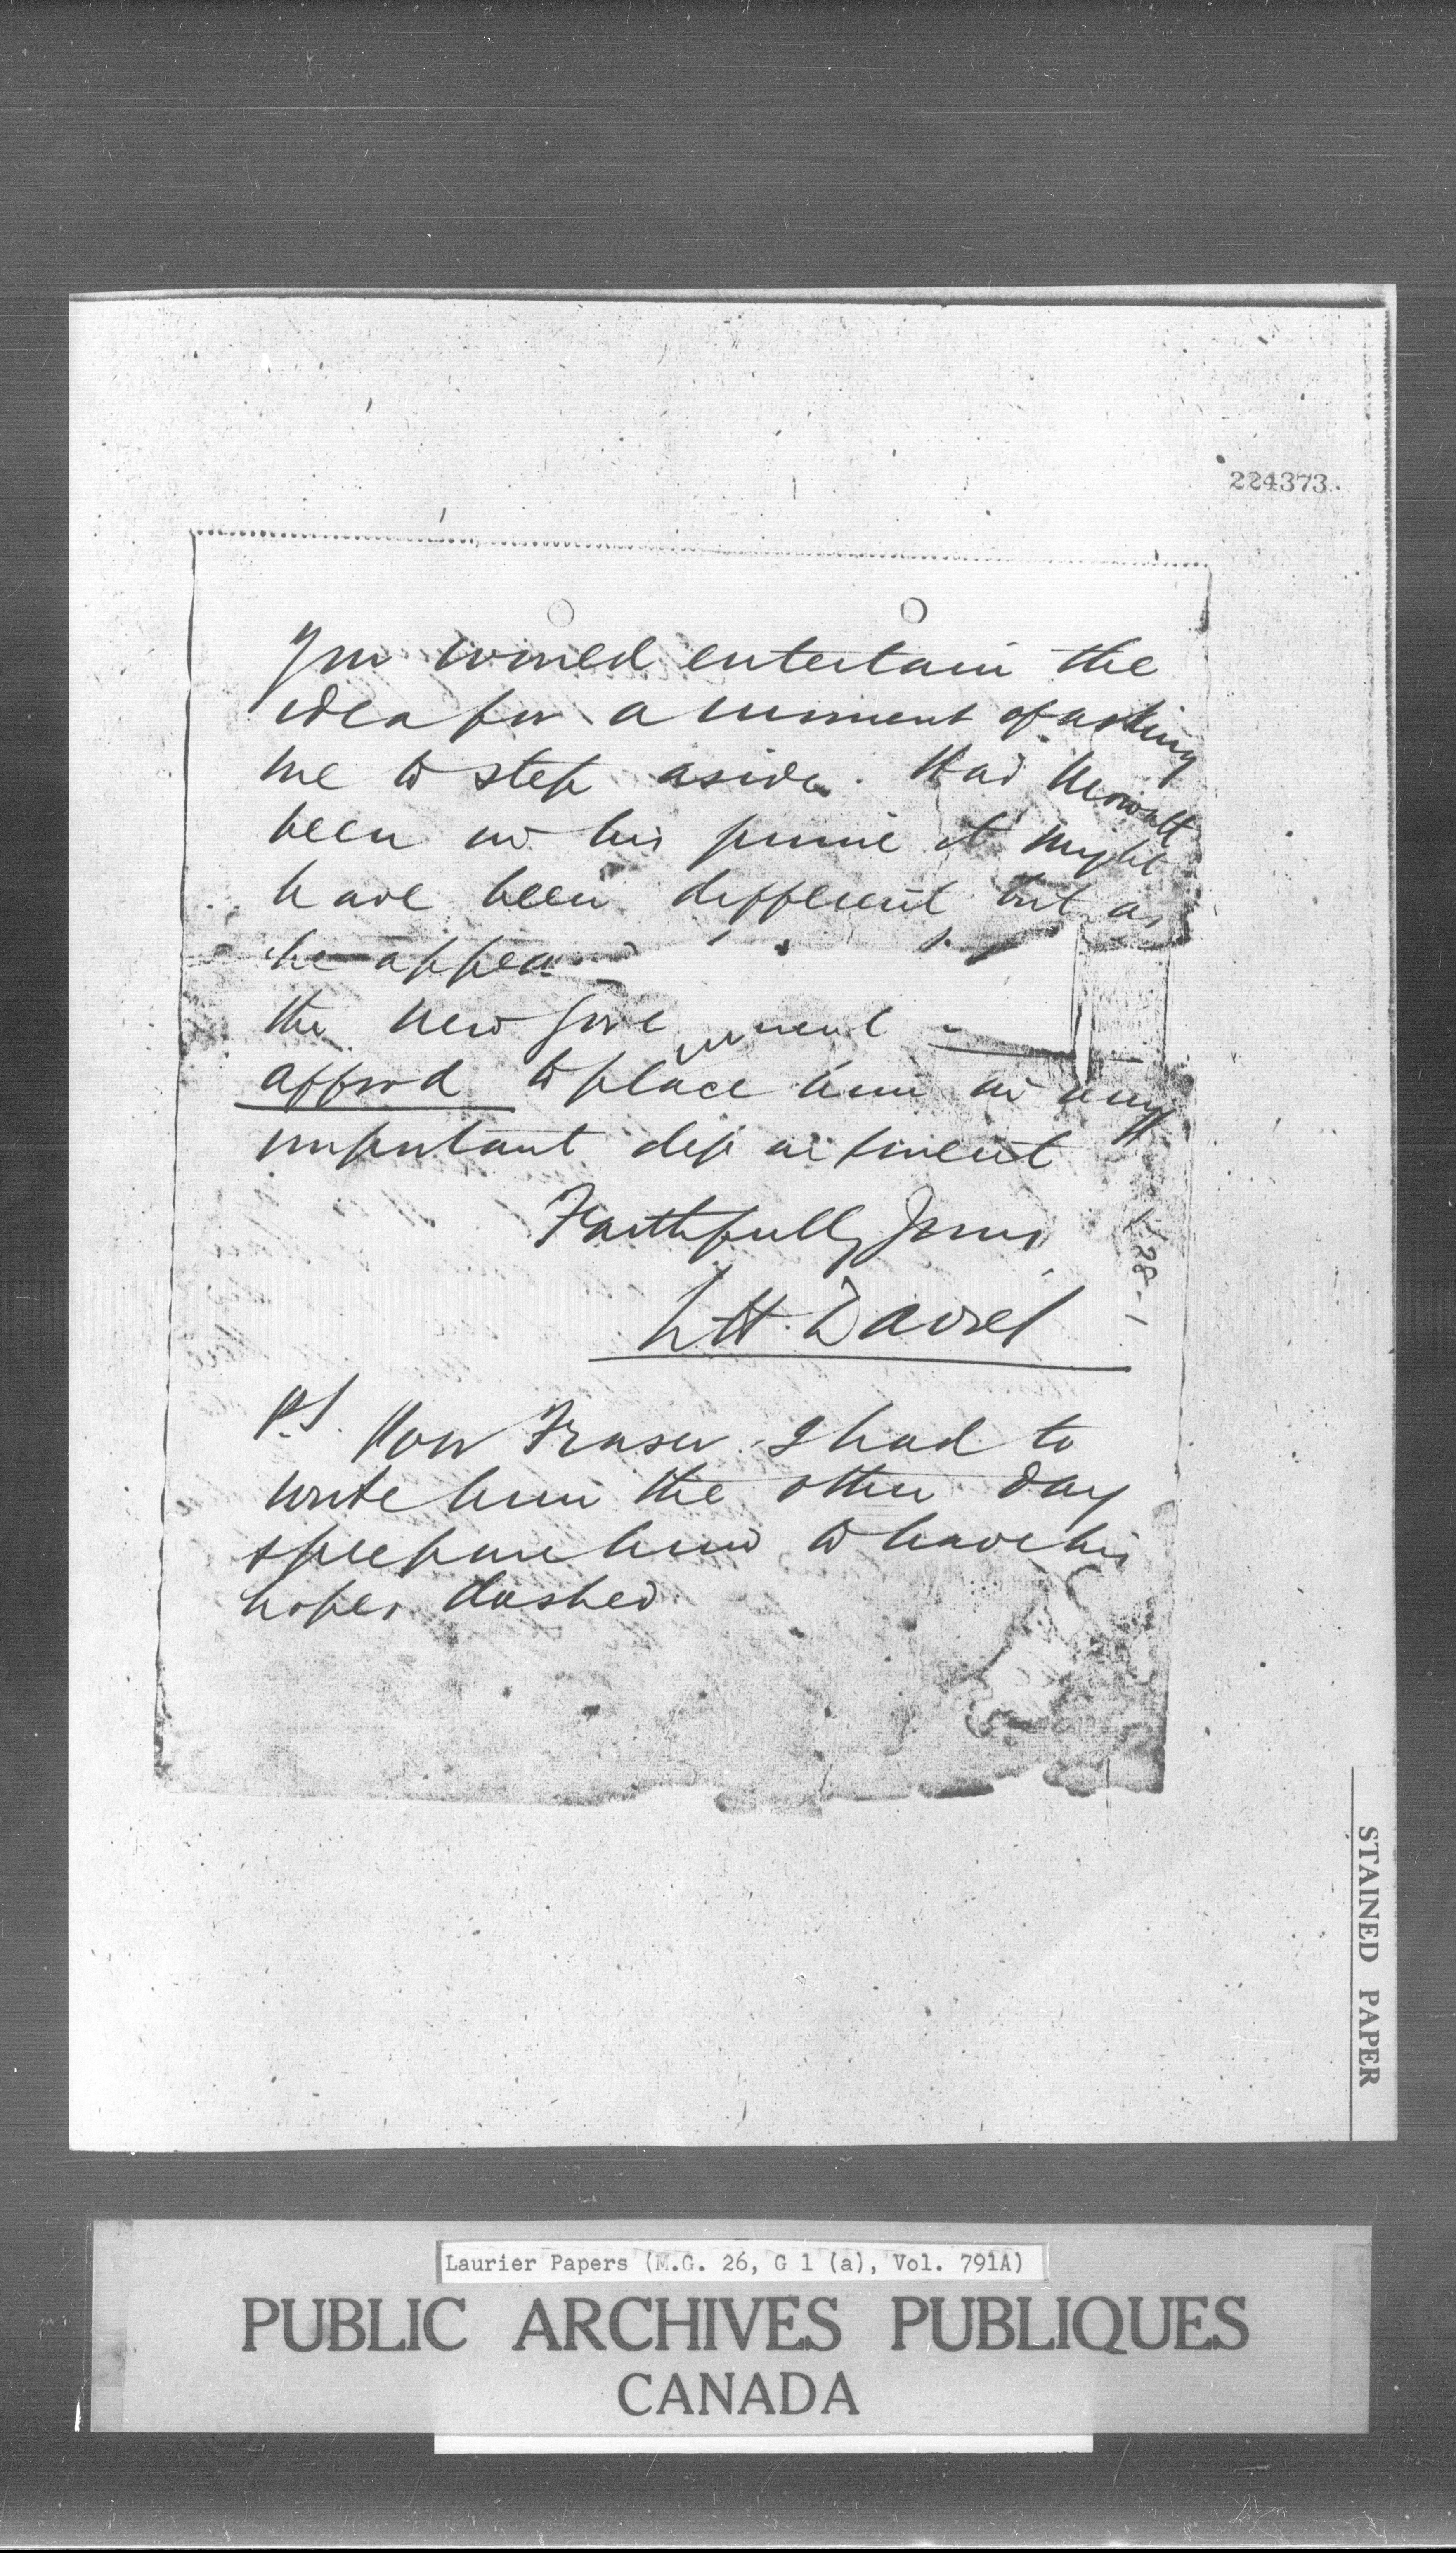 224373.
You would entertain the
idea for a moment of asking
me to step aside. Had
been in his prime it might
have been different but as
he appea
the new Gove rnment
afford to place him in any
important department
Faithfully Yours
L H. Davies
28-1
P.S. Poor Fraser. I had to
write him the other day
& prepare him to have his
hopes dashed
STAINED PAPER
Laurier Papers (M.G. 26, G 1 (a), Vol. 791A)
PUBLIC ARCHIVES PUBLIQUES
CANADA